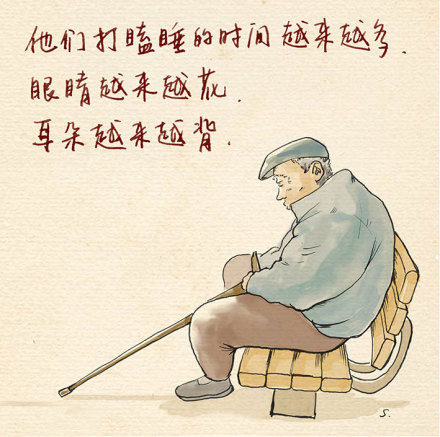 他们打瞌睡的时间越来越多.
眼睛越来越花.
耳朵越来越背.
S.